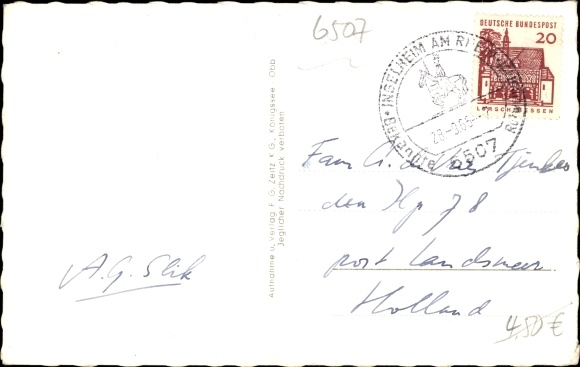 6507
DEUTSCHE BUNDESPOST
20
LORSCH/HESSEN
INGELHEIM AM RHEIN
6507
Fam
den Ilp 78
post Landsmeer
Holland
A.G. Slik
Aufnahme u. Verlag F. G. Zeitz K G., Königssee Obb
Jeglicher Nachdruck verboten
4,50 €